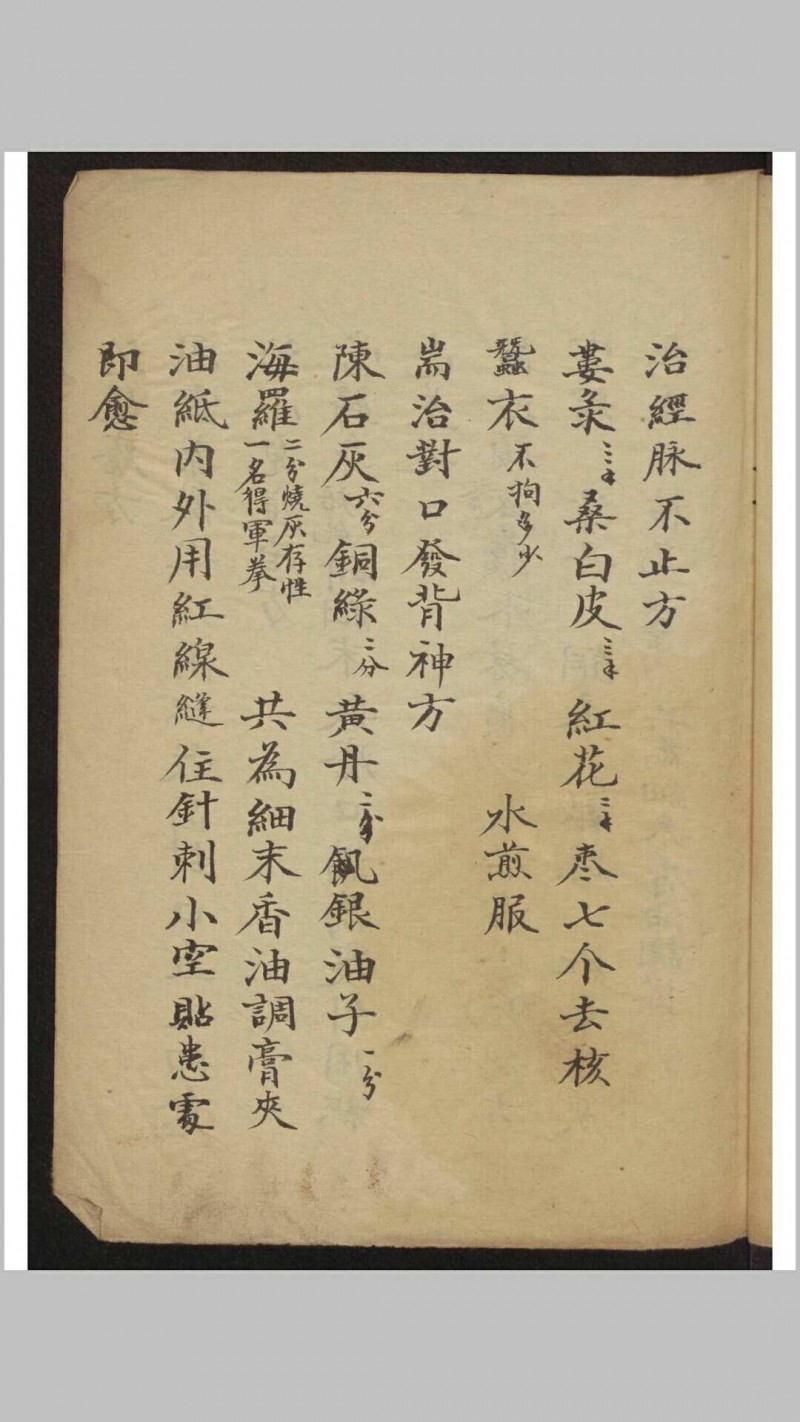 治經脉不止方
蔞灸三錢桑白皮三錢紅花三錢枣七个去核
蠶衣不狗多少 水煎服
耑治對口發背神方
陳石灰六分銅綠二分黃丹二分銀油子一分
海羅二分燒灰存性一名得軍拳 共為細末香油調膏夾
油紙内外用紅線縫住針刺小空貼患處
即愈